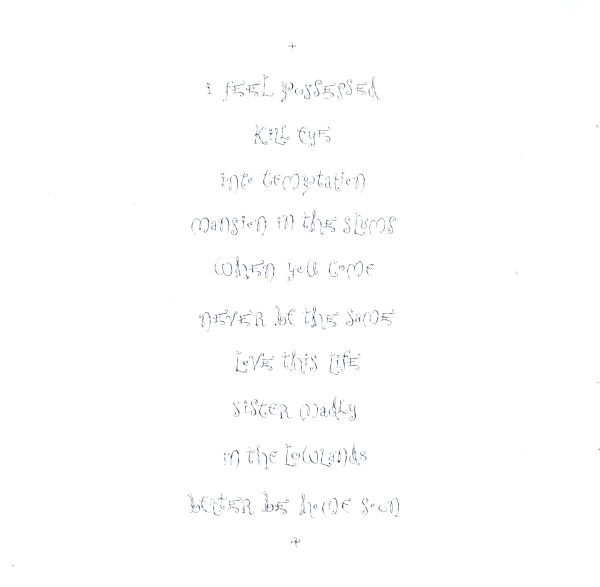 i feel possessed
kill eye
into temptation
mansion in the slums
when you come
never be the same
love this life
sister madly
in the lowlands
better be home soon